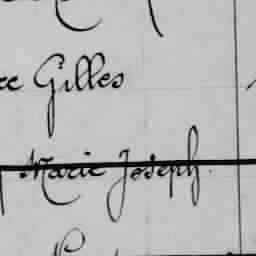 Gilles
Marie Joseph.